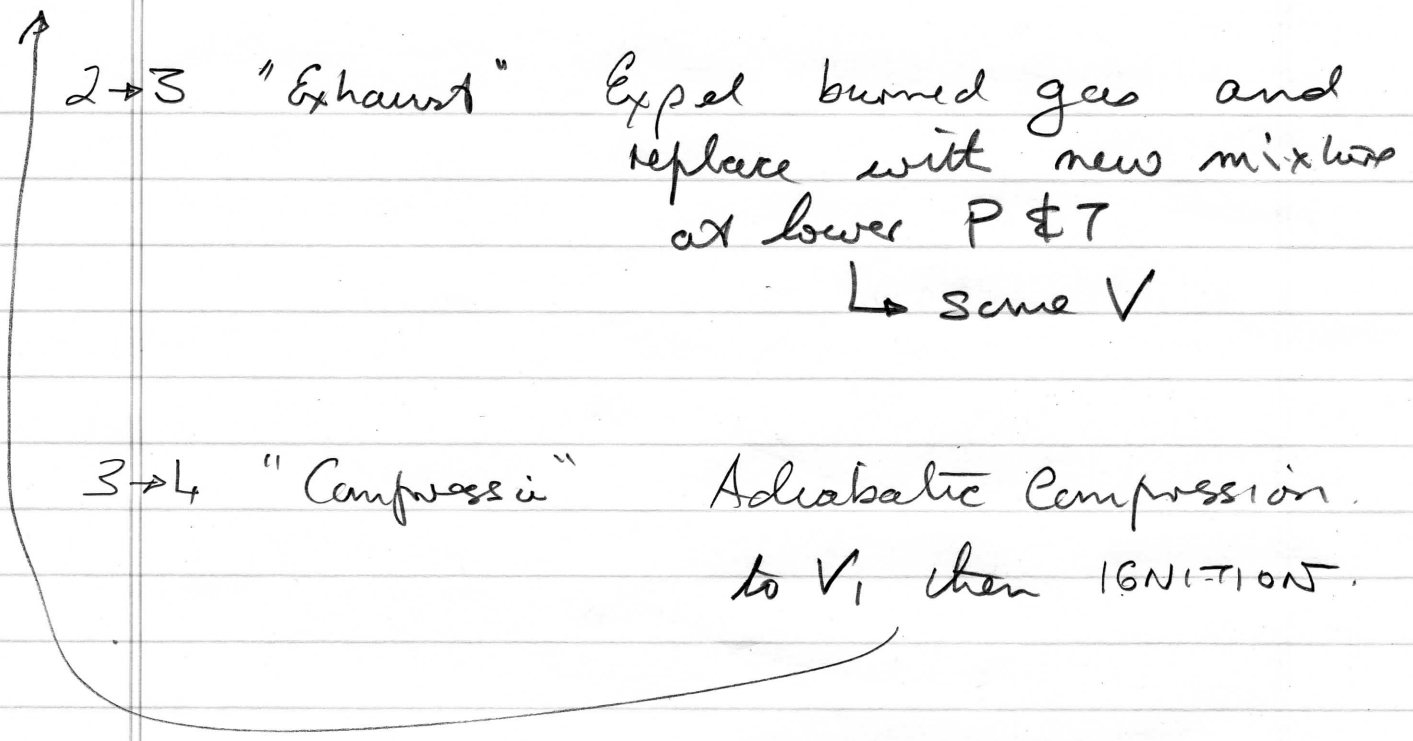 2→3 "Exhaust" Expel burned gas and
replace with new mixture
at lower P & T
↳ same V
3→4 "Compressi" Adiabatic Compression.
to V₁ then IGNITION.